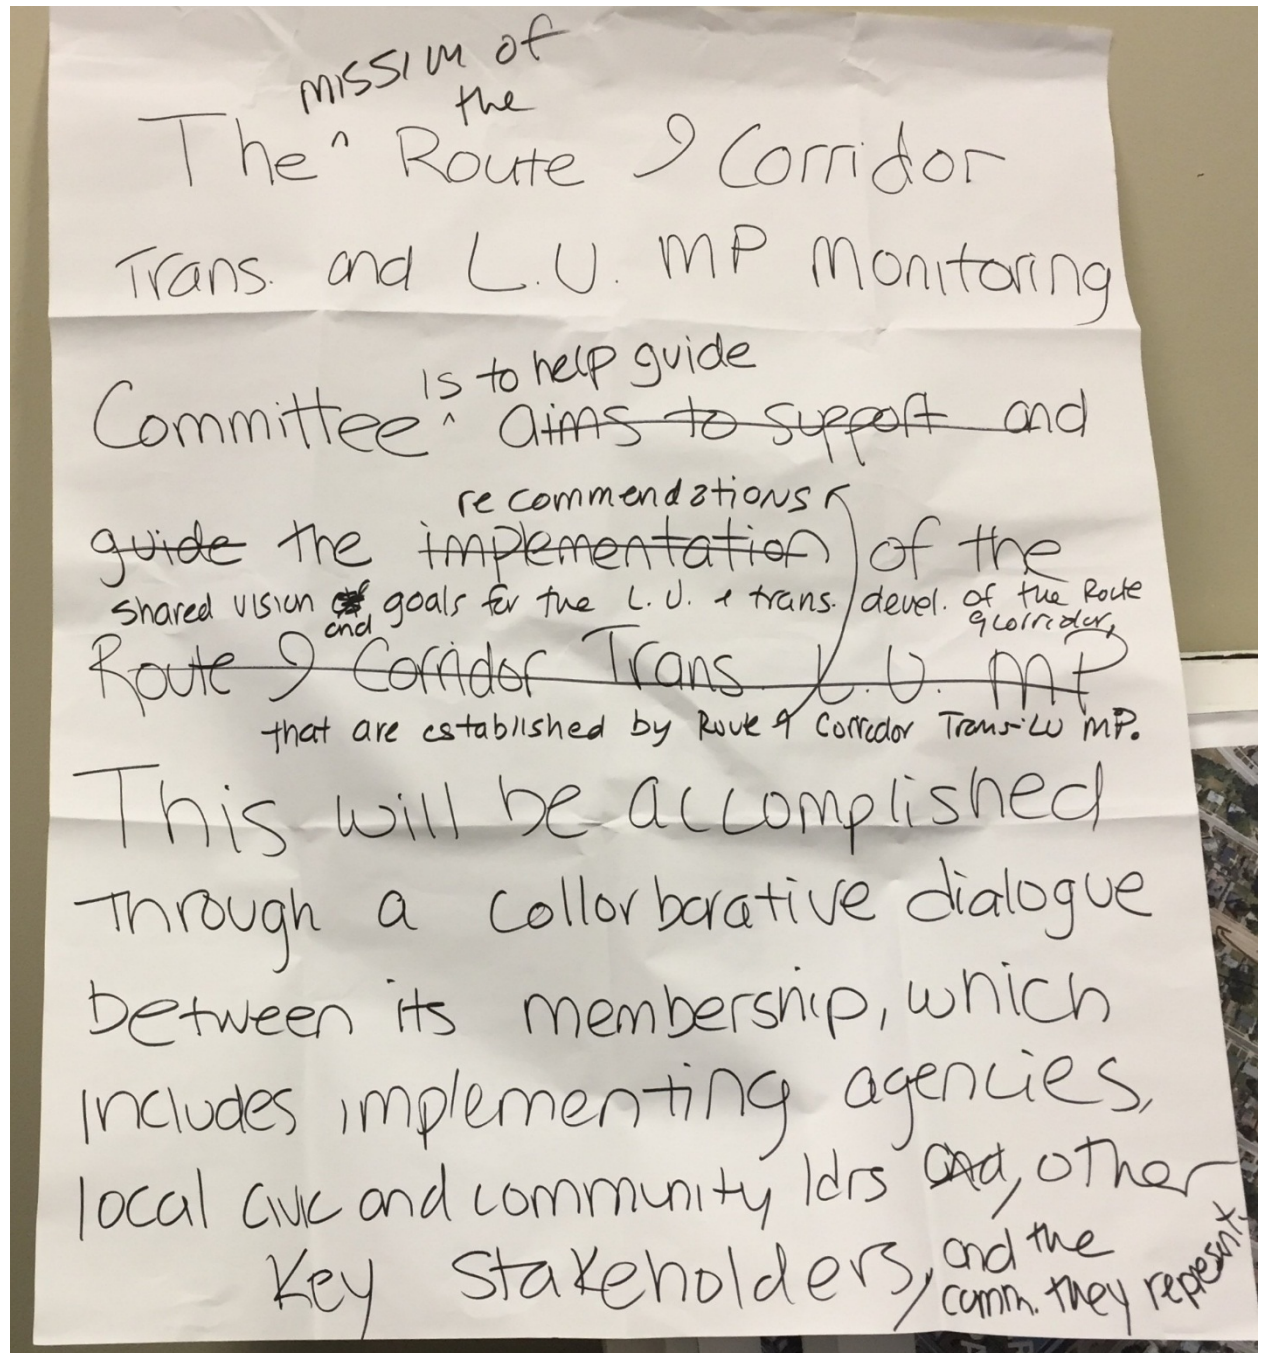 mission of
the
The ^ Route 9 Corridor
Trans. and L.U. MP Monitoring
is to help guide
Committee ^ aims to support and
recommendations
guide the implementation of the
shared vision of and goals for the L.U. & trans. devel. of the Route
9 Corridor,
Route 9 Corridor Trans. L.U. MP
that are established by Route 9 Corridor Trans-LU MP.
This will be accomplished
through a collorborative dialogue
between its membership, which
includes implementing agencies,
local civic and community ldrs and, other
Key Stakeholders, and the
comm. they represent.